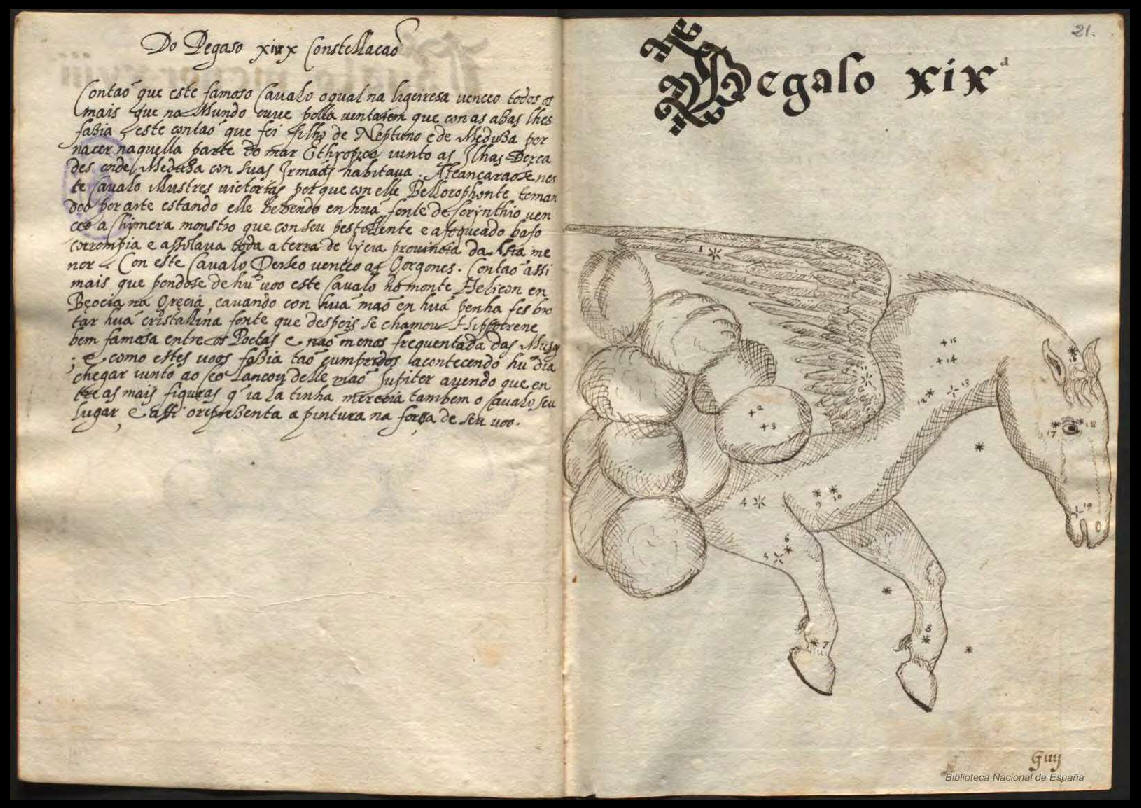 Do Pegaso xix Constellacaõ
Contaõ que este famoso Cavalo oqual na ligeiresa venceo todos os
mais que no Mundo ouve polla ventagem que con as abas lhes
fasia, este contaõ que foi filho de Neptuno e de Medusa por
nacer naquella parte do mar Ethyopico iunto as Ilhas Dorca
des onde Medusa con suas Irmaãs habitava. Alcançaraõse nes
te cavalo illustres victorias porque con elle Bellorophonte toman
doo por arte estando elle bebendo en huã fonte de Corynthio ven
ceo a Chymera monstro que con seu pestilente e afogueado bafo
corrompia e assolava toda a terra de Lycia provincia da Asia me
nor. Con este Cavalo Perseo venceo as Gorgones. Contaõ assi
mais que pondose de hũ voo este Cavalo no monte Helicon en
Beocia na Grecia, cavando con huã maõ en huã penha fes bro
tar huã cristallina fonte que despois se chamou Hippocrene
bem famosa entre os Poetas e naõ menos frequentada das Musas
; e como estes voos fasia taõ cumpridos acontecendo hũ dia
chegar iunto ao ceo lançou delle maõ Jupiter avendo que en
tre as mais figuras q̃ ia la tinha merecia tambem o Cavalo seu
lugar, e assi o representa a pintura na força de seu voo.
21.
Pegaso xix^a
1
2
3
4
5
6
7
8
9
10
12
13
14
15
17
18
19
Guy
Biblioteca Nacional de España